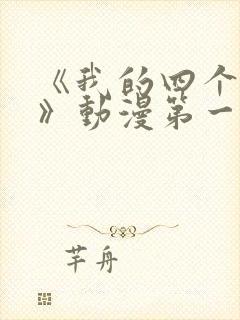 《我的四个
》動漫第一
芊舟